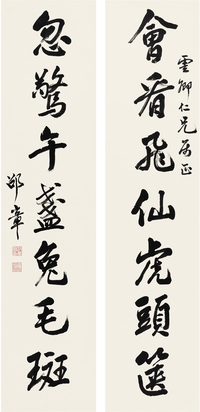 雲卿仁兄属正
會看飛仙虎頭篋
忽驚午盞兔毛斑
邵章